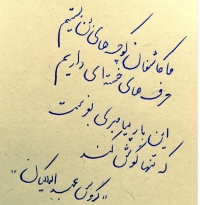 ما عاشقان کوچه های بن بستیم
حرف های خسته ای داریم
این بار پیامبری بفرست
که تنها گوش کند
"گروس عبدالملکیان"